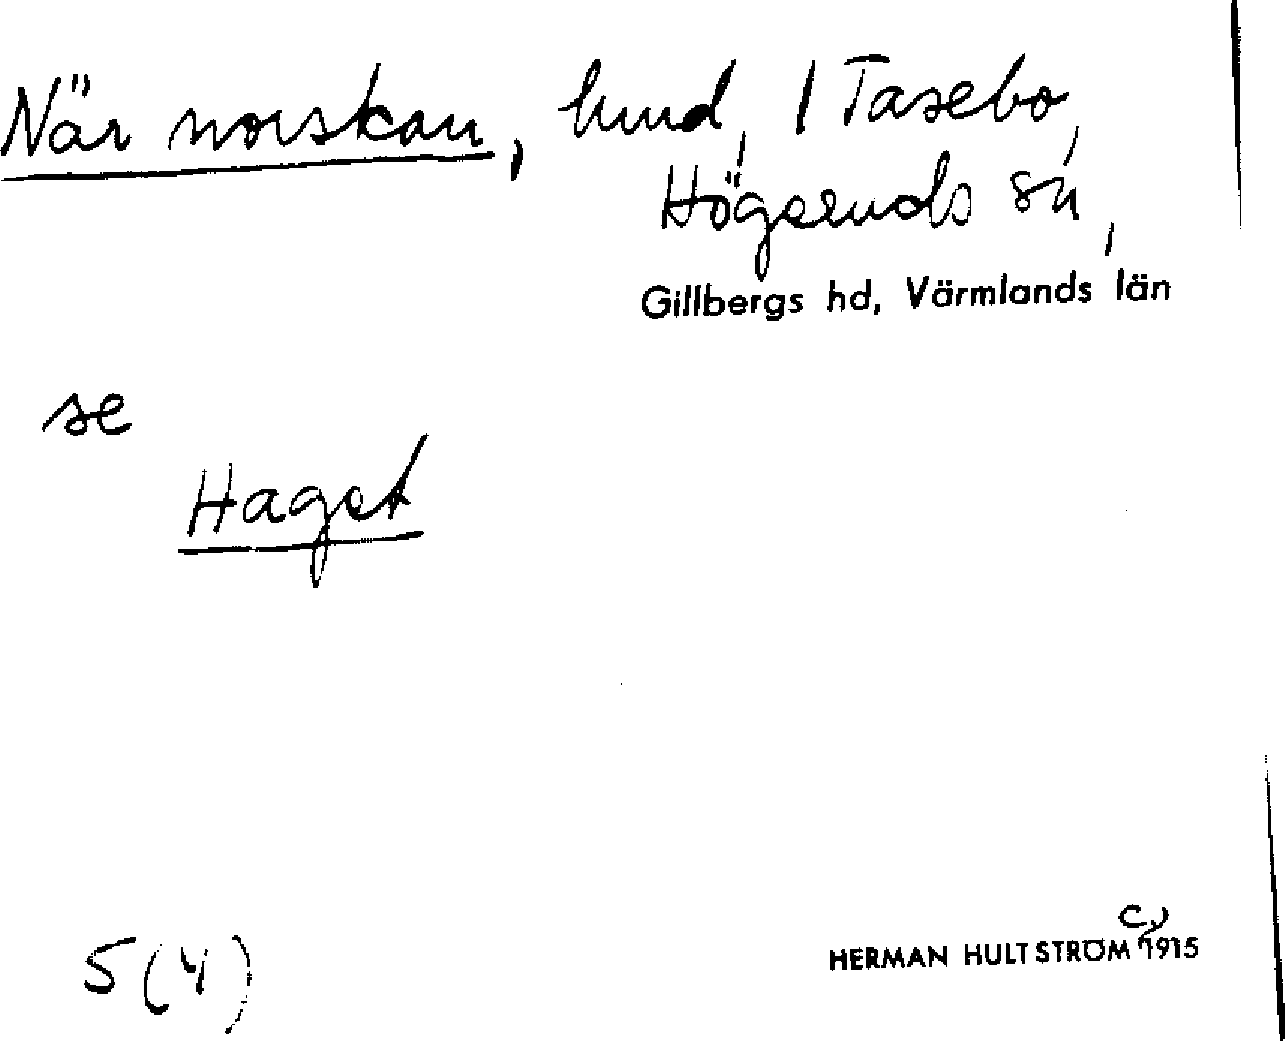 När norskan, hmd, 1 Tasebo,
Högseruds sn,
Gillbergs hd, Värmlands län
se
Haget
5(4)
HERMAN HULTSTRÖM 1915